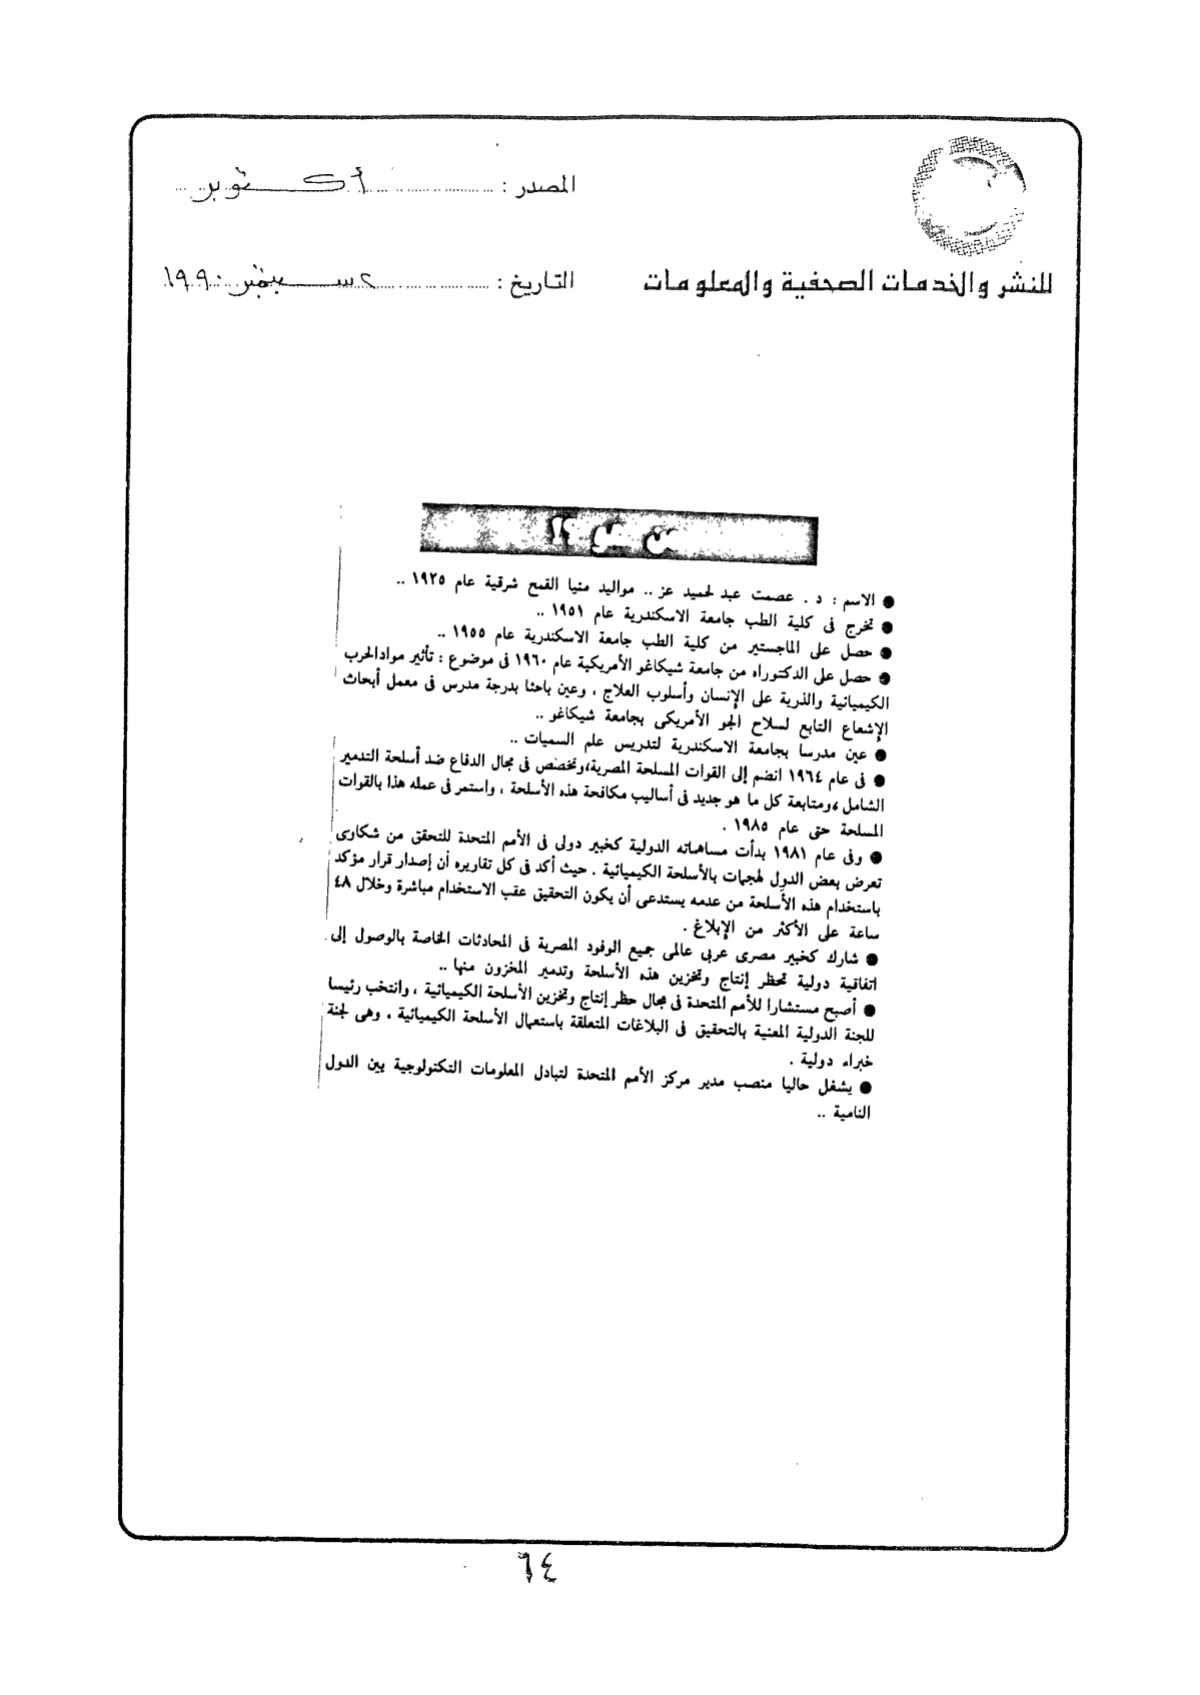 المصدر : أكتوبر
للنشر والخدمات الصحفية والمعلومات
التاريخ : ٢ سبتمبر ١٩٩٠
من هو ؟!
● الاسم : د . عصمت عبد لحميد عز .. مواليد منيا القمح شرقية عام ١٩٢٥ ..
● تخرج فى كلية الطب جامعة الاسكندرية عام ١٩٥١ ..
● حصل على الماجستير من كلية الطب جامعة الاسكندرية عام ١٩٥٥ ..
● حصل على الدكتوراه من جامعة شيكاغو الأمريكية عام ١٩٦٠ فى موضوع : تأثير موادالحرب
الكيميائية والذرية على الإنسان وأسلوب العلاج ، وعين باحثا بدرجة مدرس فى معمل أبحاث
الإشعاع التابع لسلاح الجو الأمريكى بجامعة شيكاغو ..
● عين مدرسا بجامعة الاسكندرية لتدريس علم السميات ..
● فى عام ١٩٦٤ انضم إلى القوات المسلحة المصرية،وتخصص فى مجال الدفاع ضد أسلحة التدمير
الشامل ،ومتابعة كل ما هو جديد فى أساليب مكافحة هذه الأسلحة ، واستمر فى عمله هذا بالقوات
المسلحة حتى عام ١٩٨٥ .
● وفى عام ١٩٨١ بدأت مساهماته الدولية كخبير دولى فى الأمم المتحدة للتحقق من شكاوى
تعرض بعض الدول لهجمات بالأسلحة الكيميائية . حيث أكد فى كل تقاريره أن إصدار قرار مؤكد
باستخدام هذه الأسلحة من عدمه يستدعى أن يكون التحقيق عقب الاستخدام مباشرة وخلال ٤٨
ساعة على الأكثر من الإبلاغ .
● شارك كخبير مصرى عربى عالمى جميع الوفود المصرية فى المحادثات الخاصة بالوصول إلى
اتفاقية دولية تحظر إنتاج وتخزين هذه الأسلحة وتدمير المخزون منها ..
● أصبح مستشارا للأمم المتحدة فى مجال حظر إنتاج وتخزين الأسلحة الكيميائية ، وانتخب رئيسا
للجنة الدولية المعنية بالتحقيق فى البلاغات المتعلقة باستعمال الأسلحة الكيميائية ، وهى لجنة
خبراء دولية .
● يشغل حاليا منصب مدير مركز الأمم المتحدة لتبادل المعلومات التكنولوجية بين الدول
النامية ..
٦٤